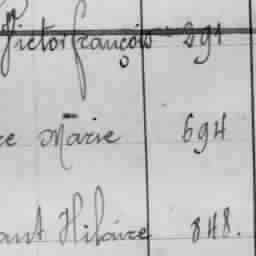 Victor françois 291
ce Marie 694
ant Hilaire 848.